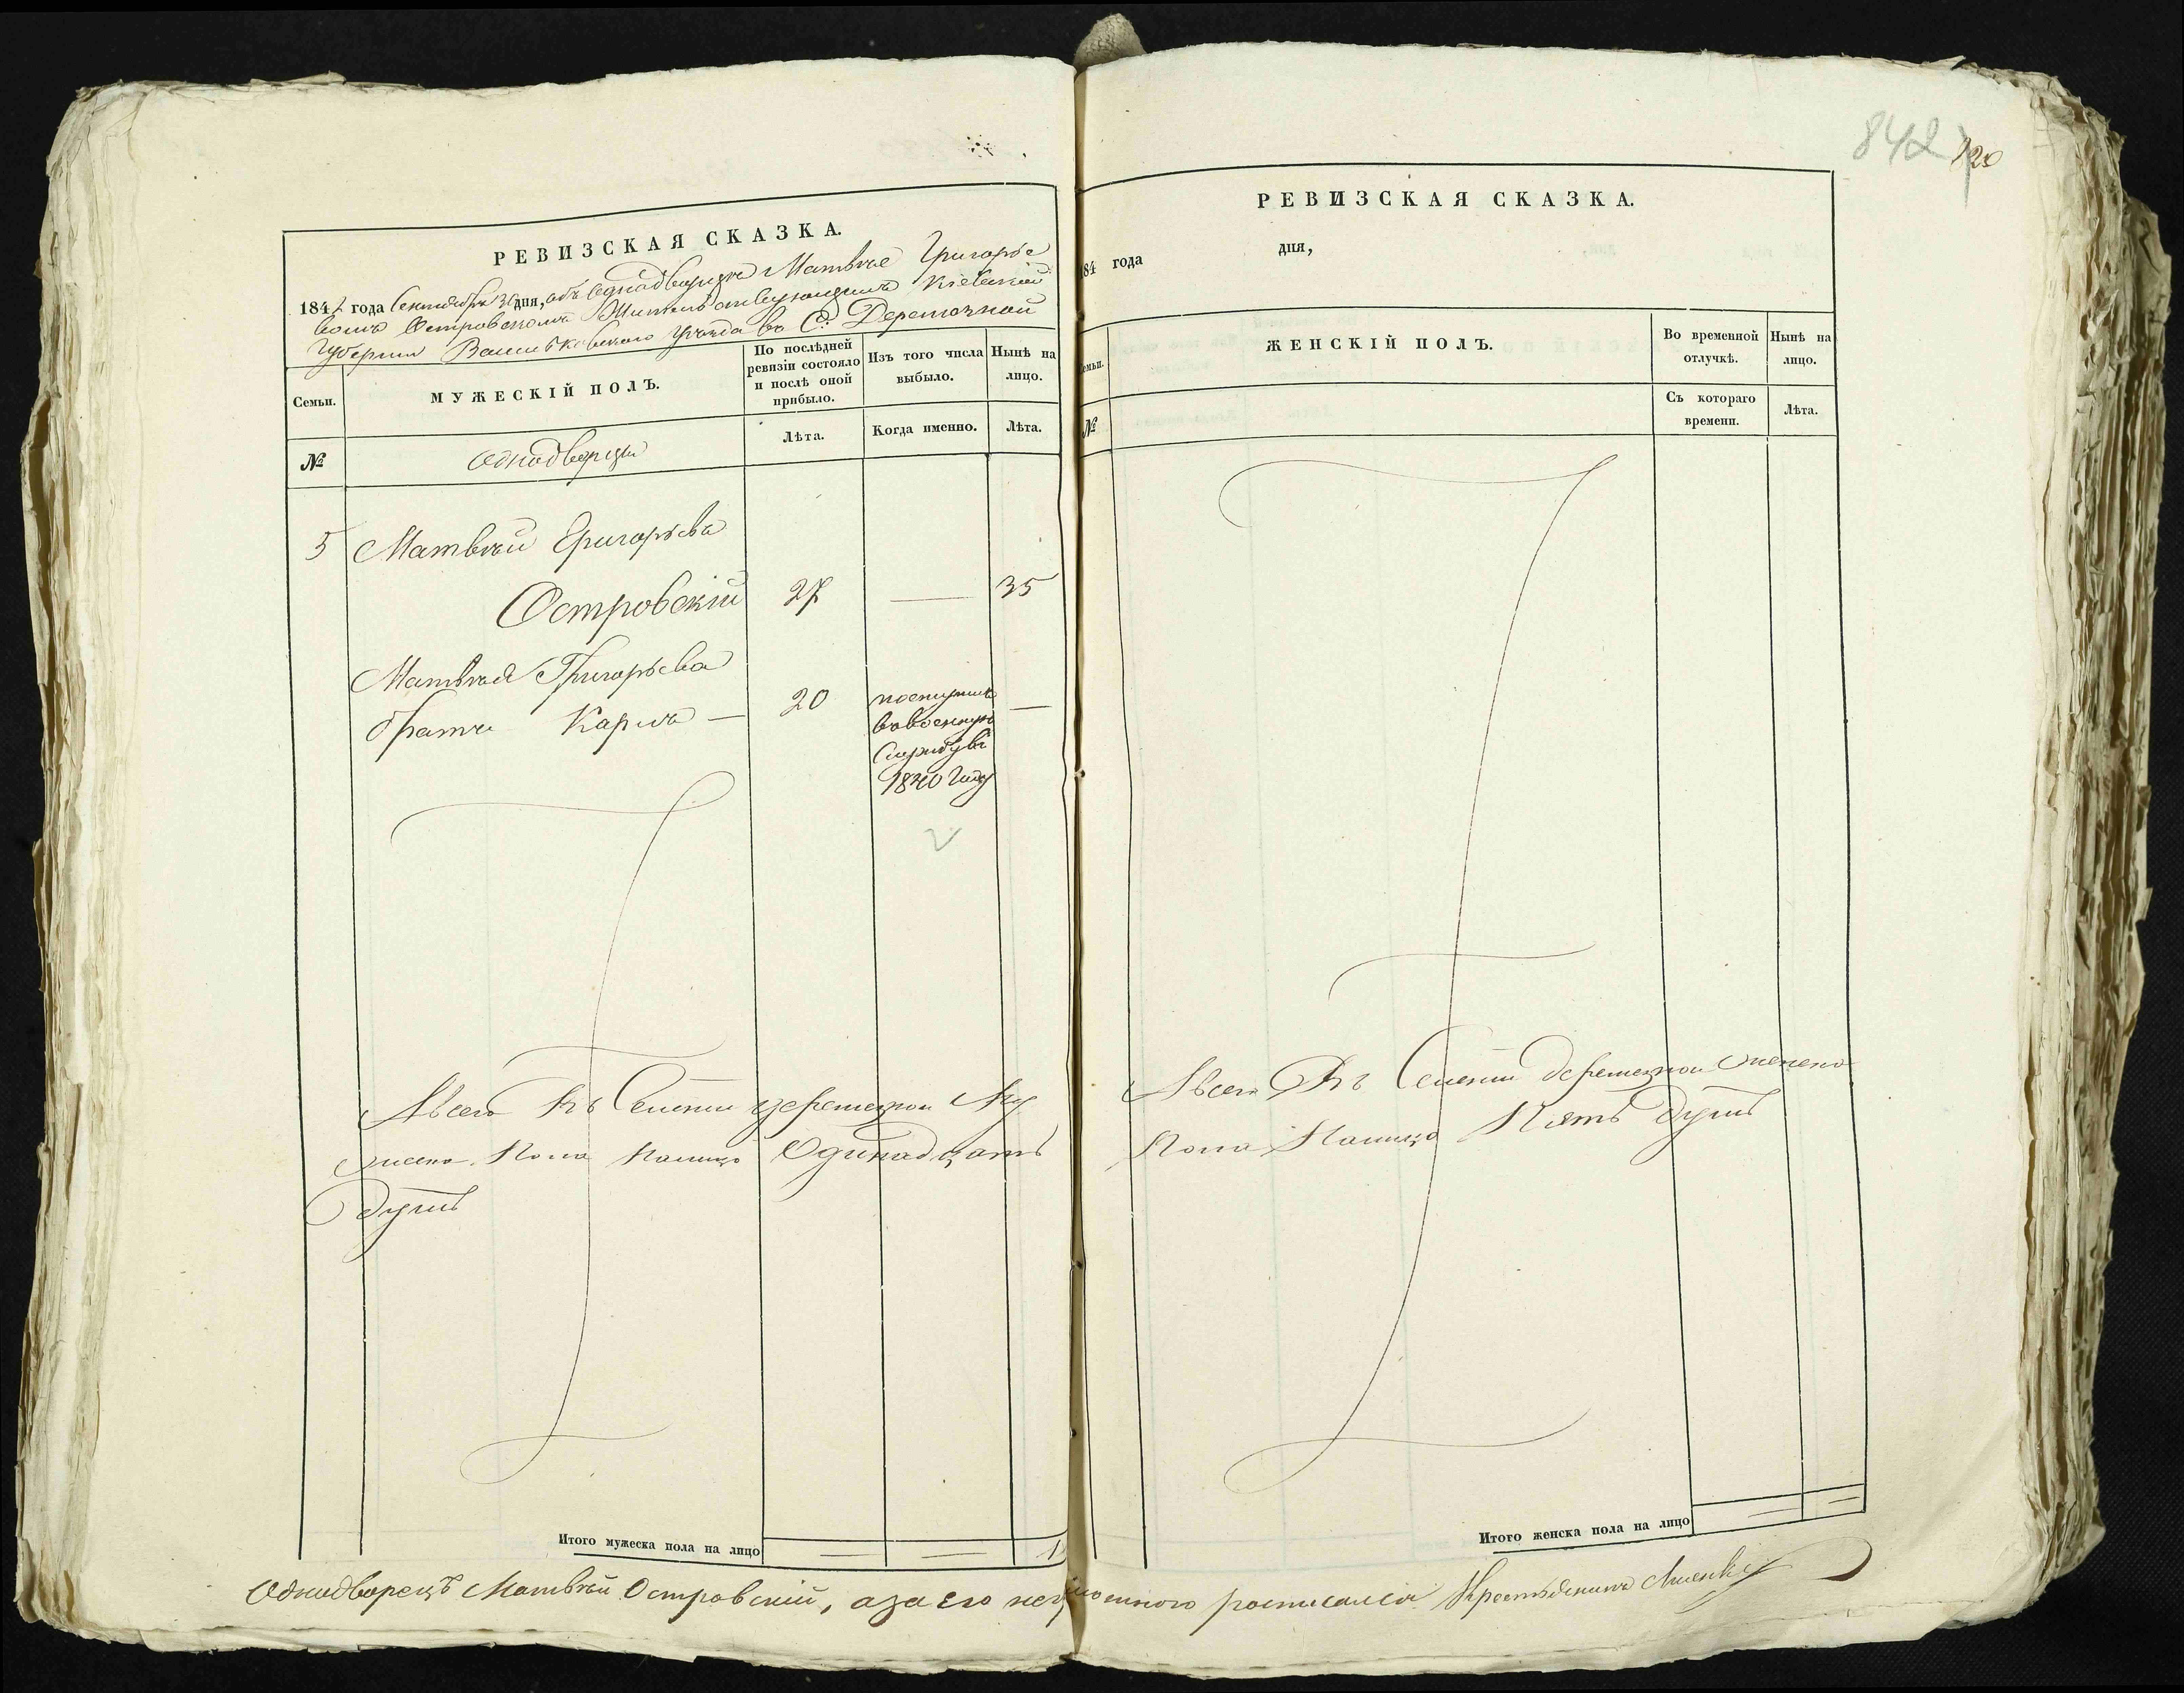 РЕВИЗСКАЯ СКАЗКА.
184 года Сентября дня, объ однодворце Матвее Григорье
вомъ Островскомъ Жительствующемъ Кіевской
Губерніи Васильковскаго уѣзда въ С. Деремезной
Семьи.
МУЖЕСКІЙ ПОЛЪ.
По послѣдней ревизіи состояло и послѣ оной прибыло.
Изъ того числа выбыло.
Нынѣ на лицо.
№
Однодворцы
Лѣта.
Когда именно.
Лѣта.
5 Матвѣй Григорьевъ
Островскій 27 — 35
Матвѣя Григорьева
братъ Карлъ — 20 —
поступилъ
в военную
службу въ
1840 году
Авсего въ Селеніи Деремезной Му
жеска Пола Налицо Одинадцать
душъ
Итого мужеска пола на лицо — — 1
842
120
РЕВИЗСКАЯ СКАЗКА.
84 года дня,
Семьи.
ЖЕНСКІЙ ПОЛЪ.
Во временной отлучкѣ.
Нынѣ на лицо.
№
Съ котораго времени.
Лѣта.
Авсего Въ Селеніи Деремезной Женска
Пола Налицо Пять душъ
Итого женска пола на лицо — —
Однодворецъ Матвѣй Островскій, аза его неграмотного росписался Крестьянинъ